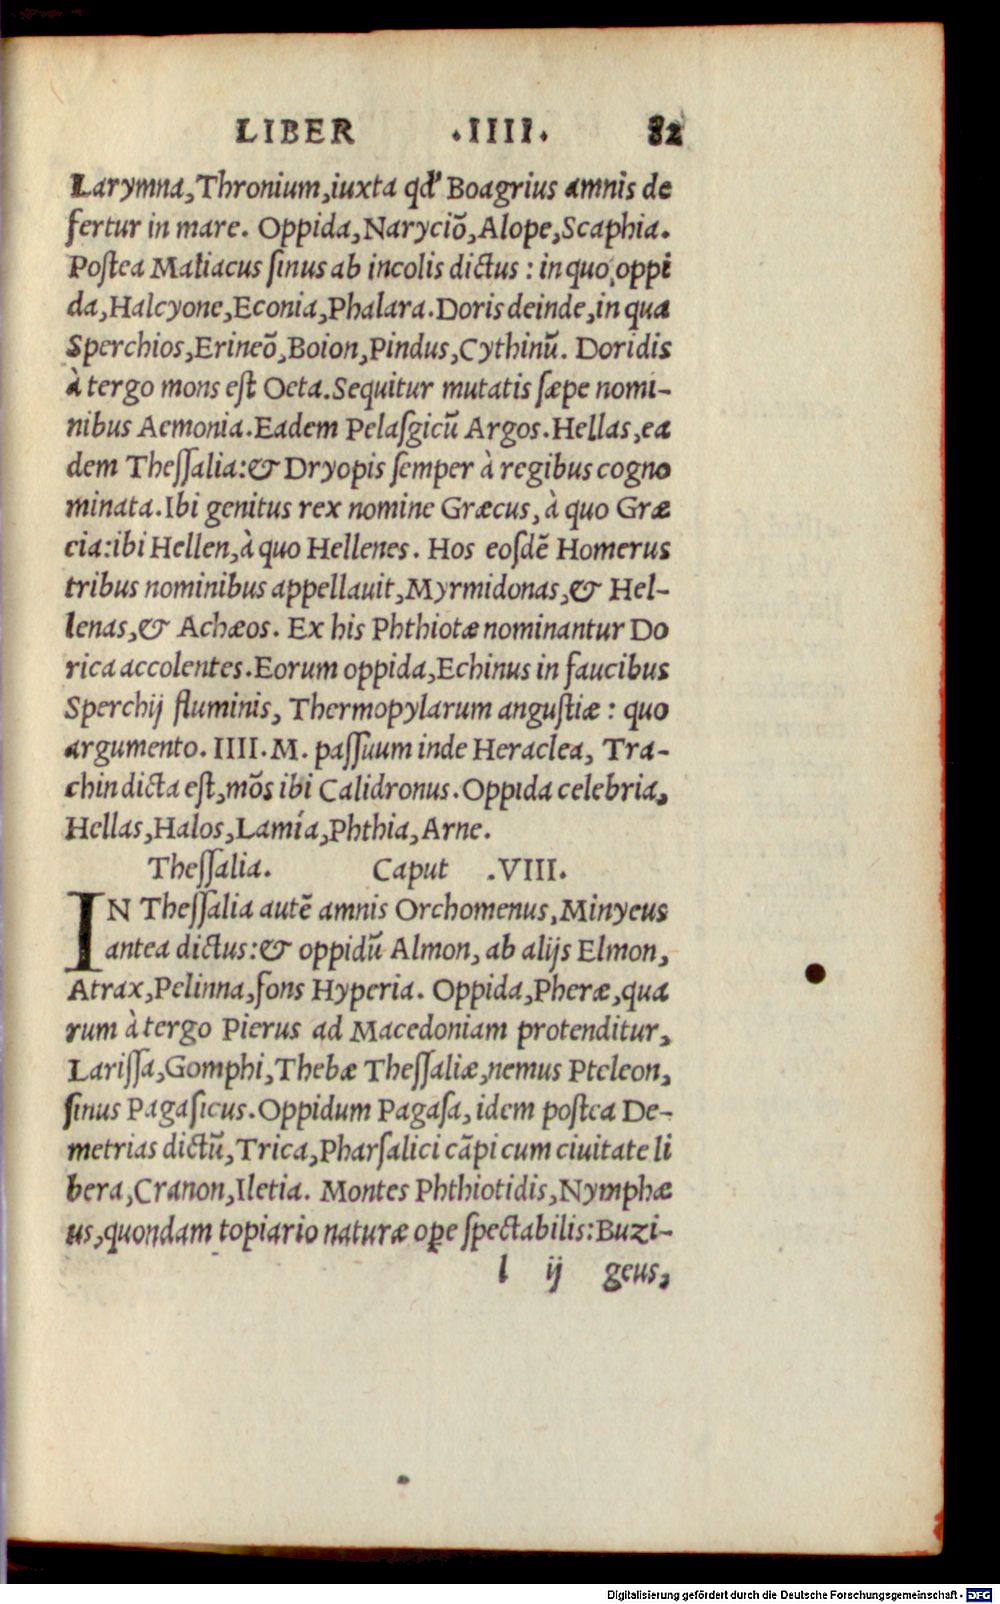 LIBER .IIII. 82
Larymna,Thronium,iuxta qđ Boagrius amnis de
fertur in mare. Oppida,Naryciō,Alope,Scaphia.
Poſtea Maliacus ſinus ab incolis dictus : in quo oppi
da,Halcyone,Econia,Phalara.Doris deinde,in qua
Sperchios,Erineō,Boion,Pindus,Cythinū. Doridis
à tergo mons eſt Oeta.Sequitur mutatis ſæpe nomi-
nibus Aemonia.Eadem Pelaſgicū Argos.Hellas,ea
dem Theſſalia:& Dryopis ſemper à regibus cogno
minata.Ibi genitus rex nomine Græcus, à quo Græ
cia:ibi Hellen,à quo Hellenes. Hos eoſdē Homerus
tribus nominibus appellauit,Myrmidonas,& Hel-
lenas,& Achæos. Ex his Phthiotæ nominantur Do
rica accolentes.Eorum oppida,Echinus in faucibus
Sperchij fluminis, Thermopylarum anguſtiæ : quo
argumento. IIII.M. paſſuum inde Heraclea, Tra-
chin dicta eſt,mōs ibi Calidronus.Oppida celebria,
Hellas,Halos,Lamía,Phthia,Arne.
Theſſalia. Caput .VIII.
IN Theſſalia autē amnis Orchomenus,Minyeus
antea dictus:& oppidū Almon, ab alijs Elmon,
Atrax,Pelinna,fons Hyperia. Oppida,Pheræ,qua
rum à tergo Pierus ad Macedoniam protenditur,
Lariſſa,Gomphi,Thebæ Theſſaliæ,nemus Pteleon,
ſinus Pagaſicus.Oppidum Pagaſa, idem poſtea De-
metrias dictū,Trica,Pharſalici cāpi cum ciuitate li
bera,Cranon,Iletia. Montes Phthiotidis,Nymphæ
us,quondam topiario naturæ oꝑe ſpectabilis:Buzi-
l ij geus,
Digitalisierung gefördert durch die Deutsche Forschungsgemeinschaft - DFG